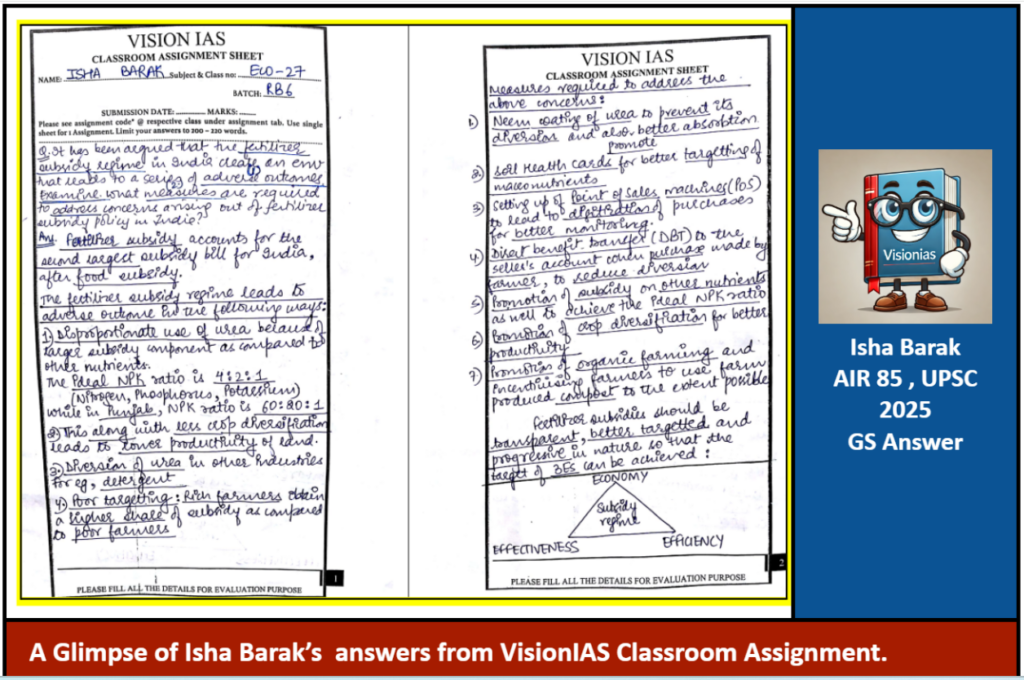 VISION IAS
CLASSROOM ASSIGNMENT SHEET
NAME: ISHA BARAK Subject & Class no: ECO-27
BATCH: RB6
SUBMISSION DATE:............. MARKS:......
Please see assignment code* @ respective class under assignment tab. Use single
sheet for 1 Assignment. Limit your answers to 200 – 220 words.
Q. It has been argued that the fertilizer
subsidy regime in India creates an env
that leads to a series of adverse outcomes.
Examine what measures are required
to address concerns arising out of fertilizer
subsidy policy in India?
Ans. Fertilizer subsidy accounts for the
second largest subsidy bill for India,
after food subsidy.
The fertilizer subsidy regime leads to
adverse outcome in the following ways:
1) Disproportionate use of urea because of
larger subsidy component as compared to
other nutrients.
The ideal NPK ratio is 4:2:1
(Nitrogen, Phosphorus, Potassium)
while in Punjab, NPK ratio is 60:20:1
2) This along with less crop diversification
leads to lower productivity of land.
3) Diversion of urea in other industries
For eg, detergent
4) Poor targeting: Rich farmers obtain
a higher share of subsidy as compared
to poor farmers
1
PLEASE FILL ALL THE DETAILS FOR EVALUATION PURPOSE
VISION IAS
CLASSROOM ASSIGNMENT SHEET
Measures required to address the
above concerns:
1) Neem coating of urea to prevent its
diversion and also better absorption
promote
2) Soil Health cards for better targetting of
macronutrients
3) Setting up of Point of Sales machines (PoS)
to lead to digitization of purchases
for better monitoring.
4) Direct benefit transfer (DBT) to the
seller's account when purchase made by
farmer, to reduce diversion
5) Promotion of subsidy on other nutrients
as well to achieve the ideal NPK ratio
6) Promotion of crop diversification for better
productivity
7) Promotion of organic farming and
incentivising farmers to use farm
produced compost to the extent possible
Fertilizer subsidies should be
transparent, better targetted and
progressive in nature so that the
target of 3Es can be achieved:
ECONOMY
Subsidy
regime
EFFECTIVENESS EFFICIENCY
2
PLEASE FILL ALL THE DETAILS FOR EVALUATION PURPOSE
Visionias
Isha Barak
AIR 85 , UPSC
2025
GS Answer
A Glimpse of Isha Barak’s answers from VisionIAS Classroom Assignment.